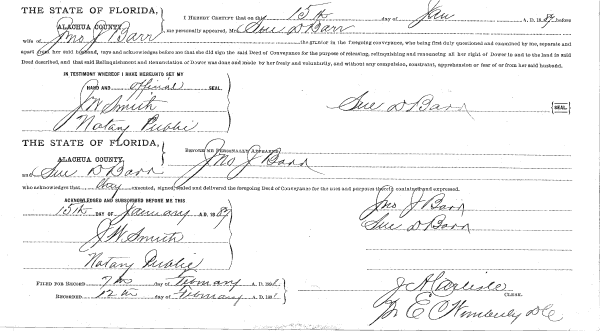 THE STATE OF FLORIDA,
ALACHUA COUNTY
I HEREBY CERTIFY that on this 15th day of Jan A. D. 1889, before
me personally appeared, Mrs Sue D Barr
wife of Jno J Barr the grantor in the foregoing conveyance, who being first duly questioned and examined by me, separate and
apart from her said husband, says and acknowledges before me that she did sign the said Deed of Conveyance for the purpose of releasing, relinquishing and renouncing all her right of Dower in and to the land in said
Deed described, and that said Relinquishment and Renunciation of Dower was done and made by her freely and voluntarily, and without any compulsion, constraint, apprehension or fear of or from her said husband.
IN TESTIMONY WHEREOF I HAVE HEREUNTO SET MY
HAND AND official SEAL.
J W Smith
Notary Public
Sue D Barr SEAL
THE STATE OF FLORIDA,
ALACHUA COUNTY,
BEFORE ME PERSONALLY APPEARED
Jno J Barr
and Sue D Barr
who acknowledges that they executed, signed, sealed and delivered the foregoing Deed of Conveyance for the uses and purposes therein contained and expressed.
ACKNOWLEDGED AND SUBSCRIBED BEFORE ME THIS
15th DAY OF January A. D. 1889
J W Smith
Notary Public
Jno J Barr
Sue D Barr
FILED FOR RECORD 7th day of February A. D. 188
RECORDED 12th day of February A. D. 188
J A Carlisle
CLERK.
E C Wimberly DC